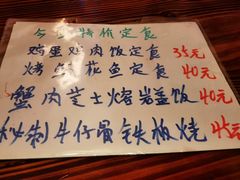 今日特价定食
鸡蛋鸡肉饭定食 35元
烤鲭花鱼定食 40元
蟹肉芝士焗岩盖饭 40元
秘制牛仔骨铁板烧 45元